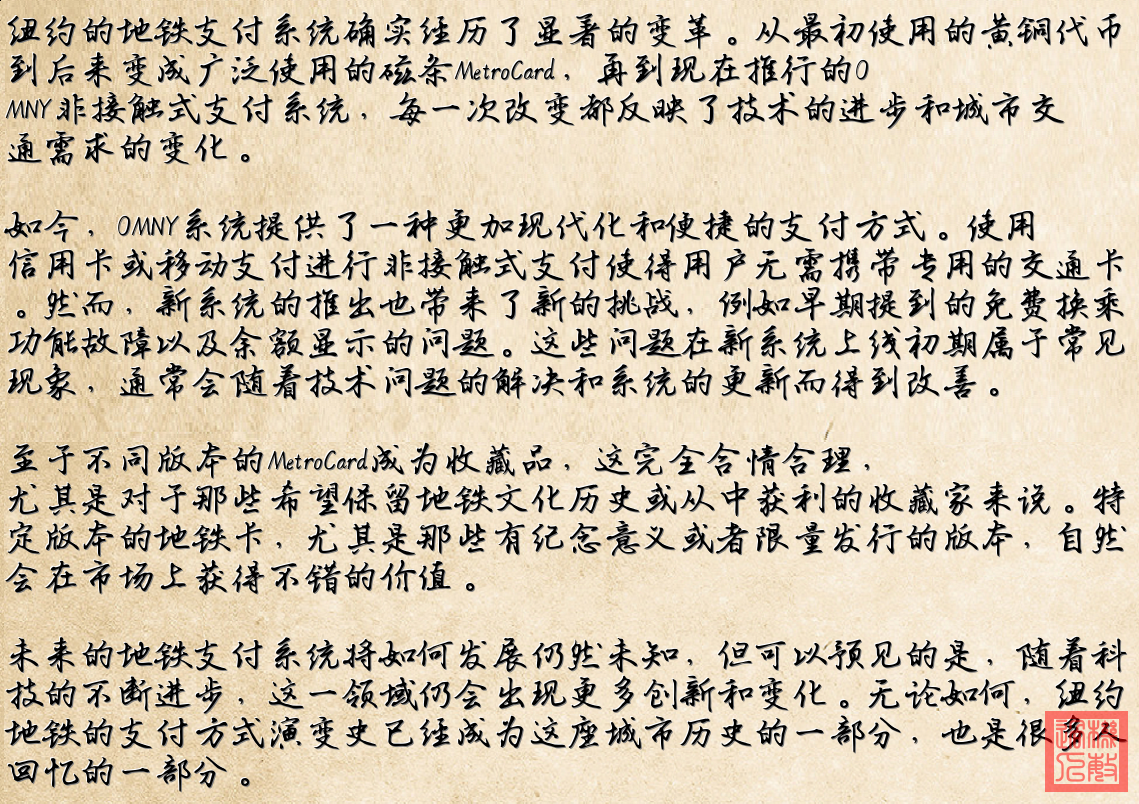 纽约的地铁支付系统确实经历了显著的变革。从最初使用的黄铜代币
到后来变成广泛使用的磁条MetroCard，再到现在推行的O
MNY非接触式支付系统，每一次改变都反映了技术的进步和城市交
通需求的变化。
如今，OMNY系统提供了一种更加现代化和便捷的支付方式。使用
信用卡或移动支付进行非接触式支付使得用户无需携带专用的交通卡
。然而，新系统的推出也带来了新的挑战，例如早期提到的免费换乘
功能故障以及余额显示的问题。这些问题在新系统上线初期属于常见
现象，通常会随着技术问题的解决和系统的更新而得到改善。
至于不同版本的MetroCard成为收藏品，这完全合情合理，
尤其是对于那些希望保留地铁文化历史或从中获利的收藏家来说。特
定版本的地铁卡，尤其是那些有纪念意义或者限量发行的版本，自然
会在市场上获得不错的价值。
未来的地铁支付系统将如何发展仍然未知，但可以预见的是，随着科
技的不断进步，这一领域仍会出现更多创新和变化。无论如何，纽约
地铁的支付方式演变史已经成为这座城市历史的一部分，也是很多人
回忆的一部分。